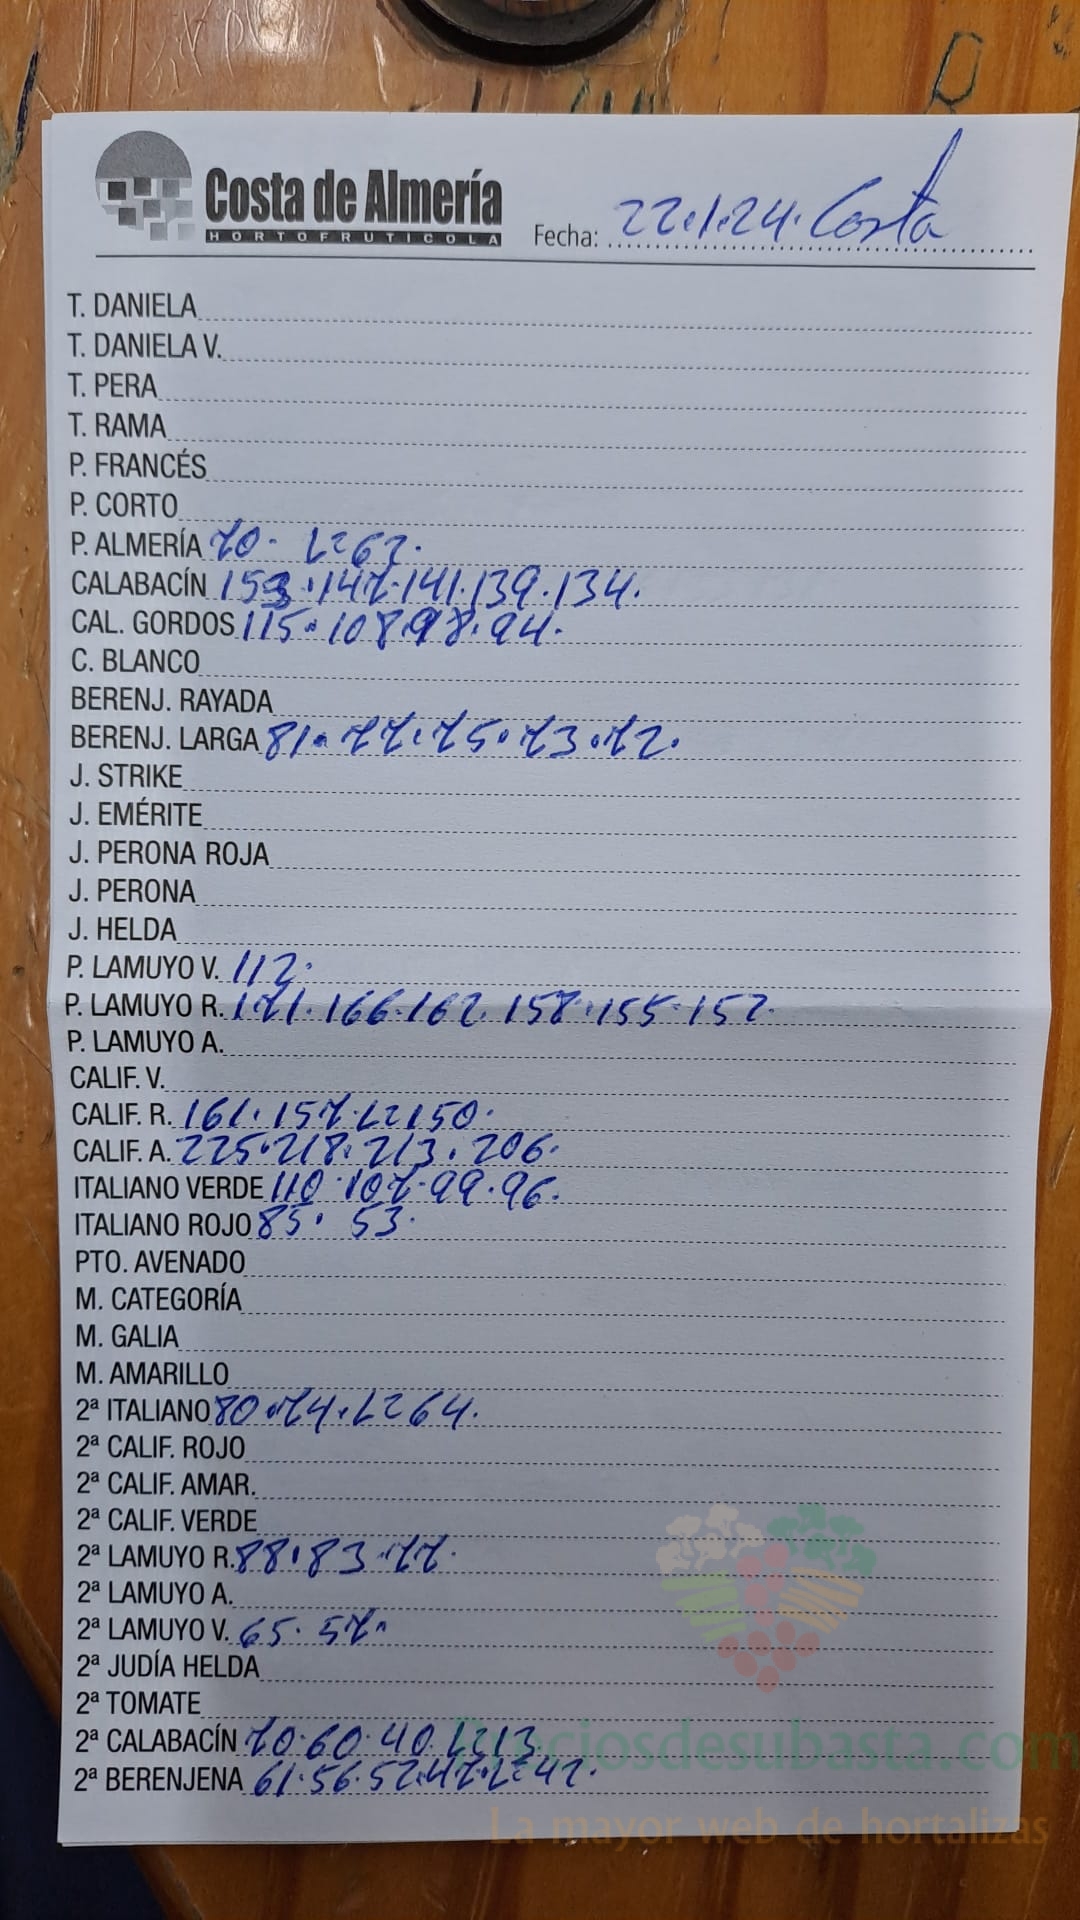 Costa de Almería
HORTOFRUTICOLA
Fecha: 22.1.24. Costa
T. DANIELA
T. DANIELA V.
T. PERA
T. RAMA
P. FRANCÉS
P. CORTO
P. ALMERÍA 70. L=62.
CALABACÍN 153.147.141.139.134.
CAL. GORDOS 115.108.98.94.
C. BLANCO
BERENJ. RAYADA
BERENJ. LARGA 81.77.75.73.72.
J. STRIKE
J. EMÉRITE
J. PERONA ROJA
J. PERONA
J. HELDA
P. LAMUYO V. 112.
P. LAMUYO R. 171.166.162.158.155.152.
P. LAMUYO A.
CALIF. V.
CALIF. R. 161.157.L=150.
CALIF. A. 225.218.213.206.
ITALIANO VERDE 110.107.99.96.
ITALIANO ROJO 85. 53.
PTO. AVENADO
M. CATEGORÍA
M. GALIA
M. AMARILLO
2ª ITALIANO 80.74.L=64.
2ª CALIF. ROJO
2ª CALIF. AMAR.
2ª CALIF. VERDE
2ª LAMUYO R. 88.83.77.
2ª LAMUYO A.
2ª LAMUYO V. 65. 57.
2ª JUDÍA HELDA
2ª TOMATE
2ª CALABACÍN 70.60.40.L=13
2ª BERENJENA 61.56.52.47.L=42.
Preciosdesubasta.com
La mayor web de hortalizas